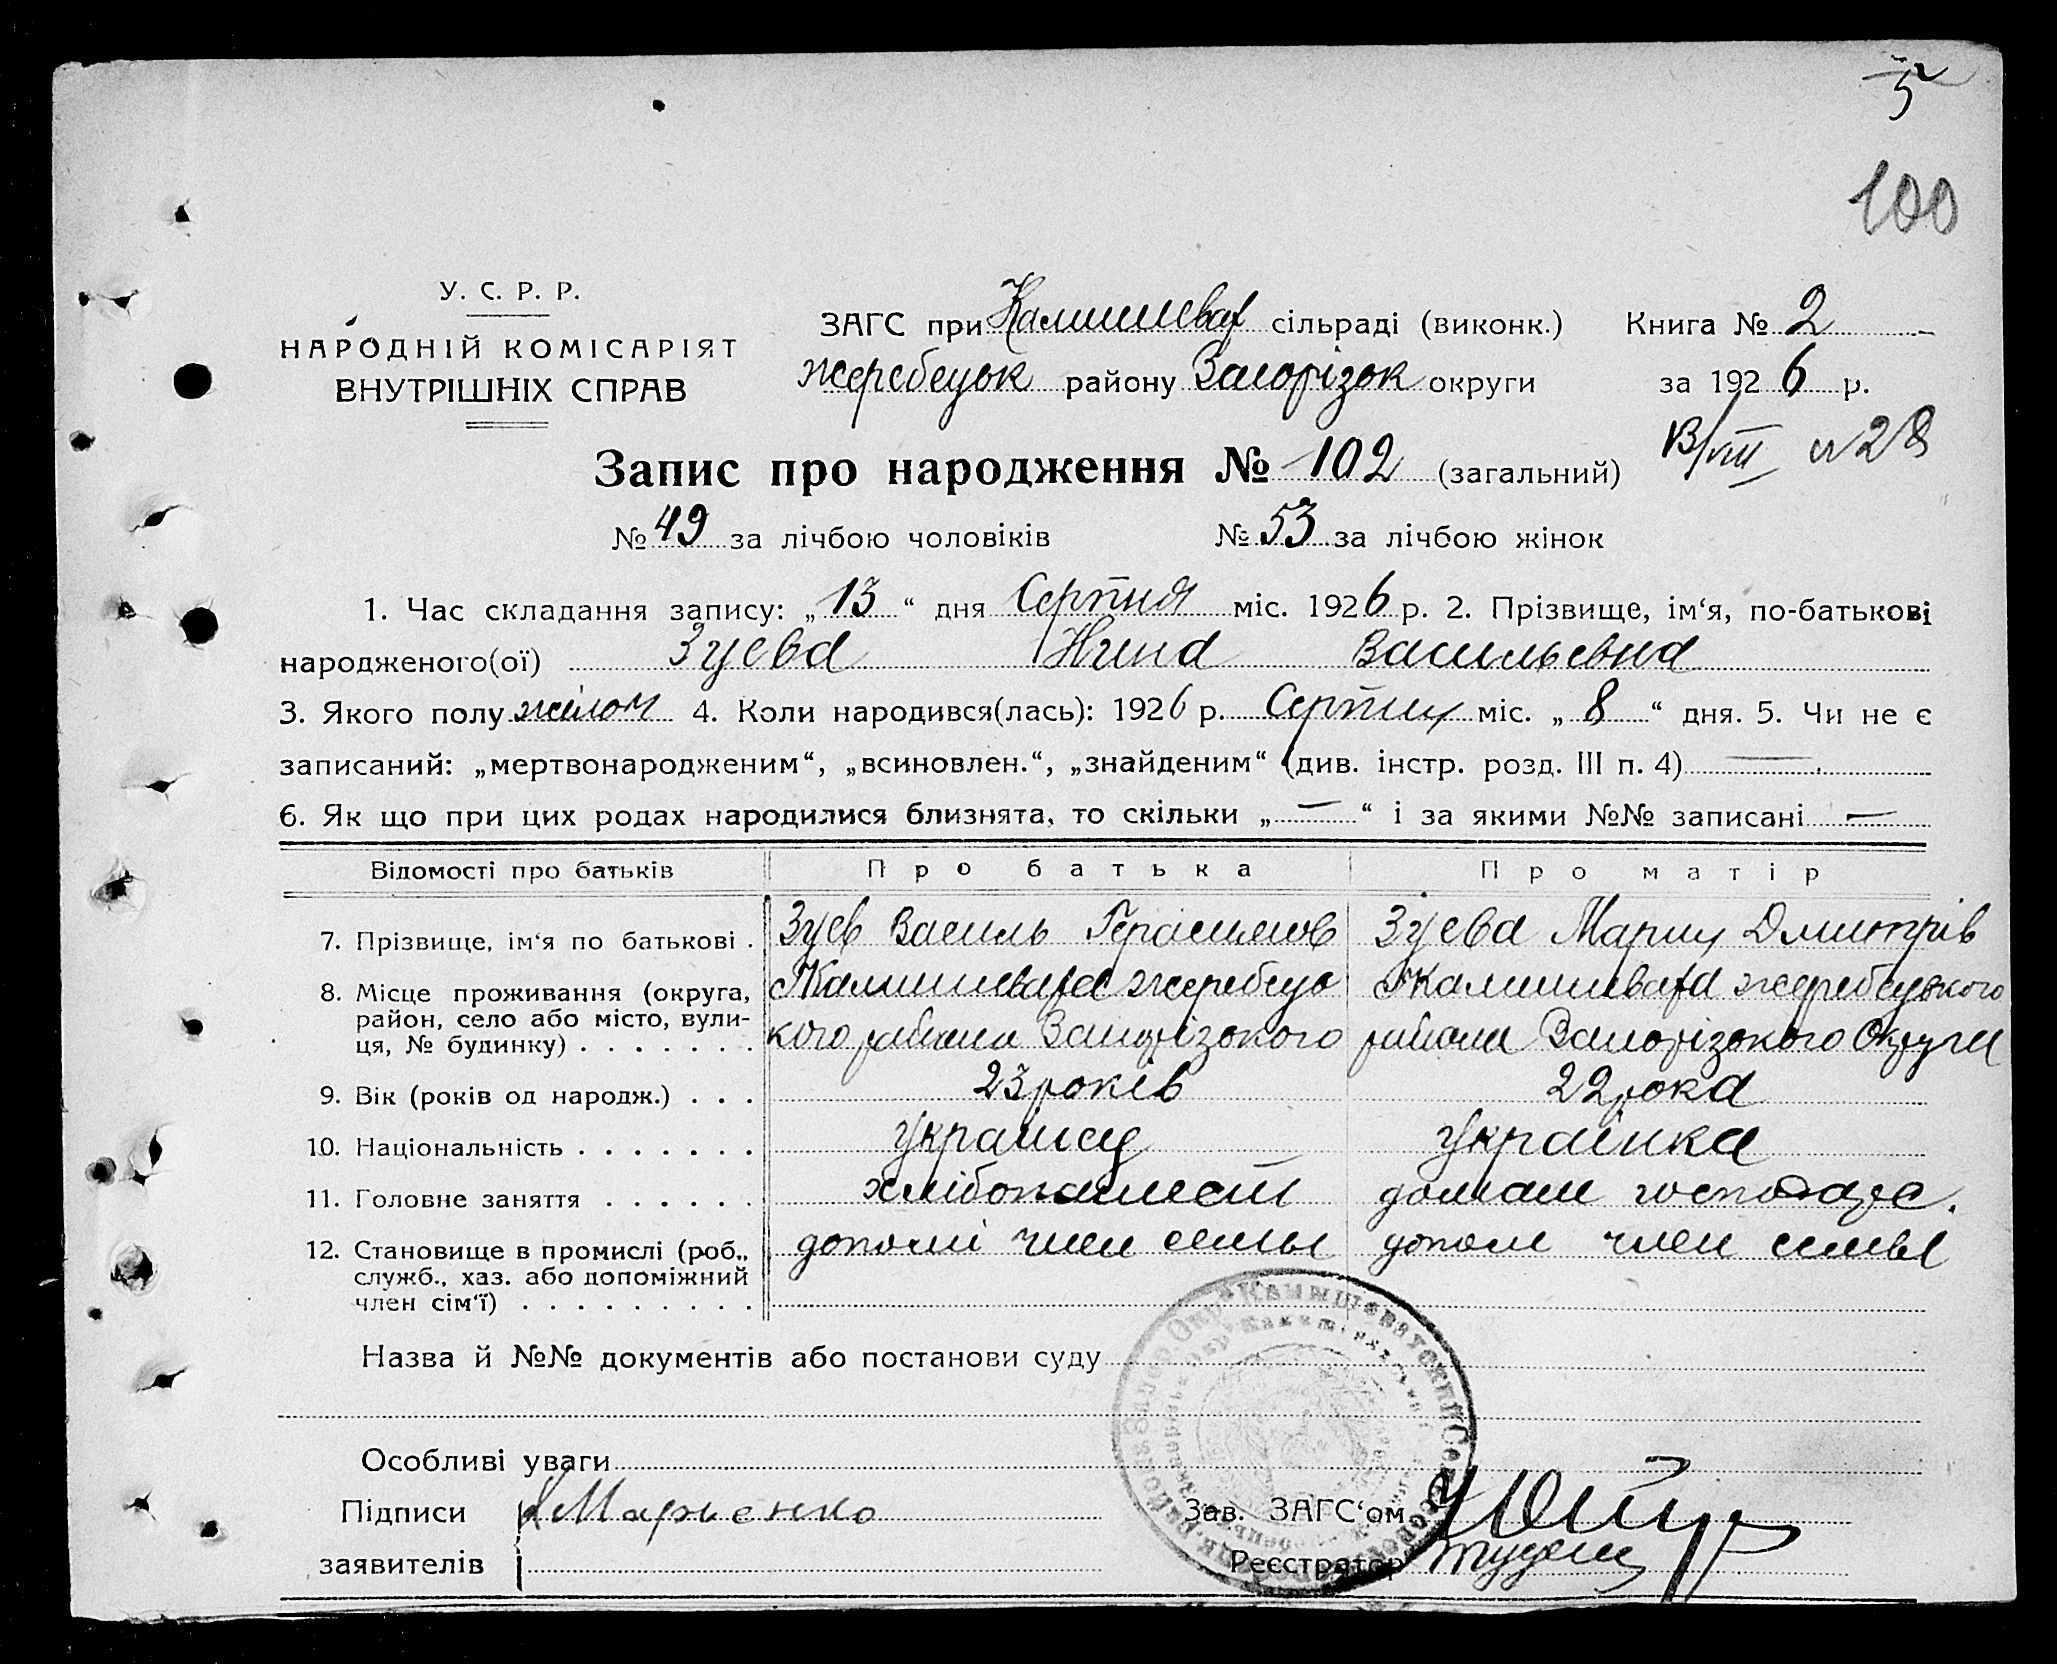 5
100
У. С. Р. Р.
НАРОДНІЙ КОМІСАРІЯТ
ВНУТРІШНІХ СПРАВ
ЗАГС при Камишеват сільраді (виконк.) Книга № 2
Жеребецьк району Запорізьк округи за 1926 р.
№ 28
Запис про народження № 102 (загальний)
№ 49 за лічбою чоловіків № 53 за лічбою жінок
1. Час складання запису: „13“ дня Серпня міс. 1926 р. 2. Прізвище, ім‘я, по-батькові
народженого(ої) Зуева Нина Васильевна
3. Якого полу 4. Коли народився(лась): 1926 р. Серпня міс. „8“ дня. 5. Чи не є
записаний: „мертвонародженим“, „всиновлен.“, „знайденим“ (див. інстр. розд. III п. 4) —
6. Як що при цих родах народилися близнята, то скільки „—“ і за якими №№ записані —
Відомості про батьків Про батька Про матір
7. Прізвище, ім‘я по батькові . Зуев Василь Герасимов Зуева Мария Дмитрів
8. Місце проживання (округа, Камишевата жеребець Камишевата жеребецького
район, село або місто, вули- кого района Запорізького района Запорізького Округи
ця, № будинку) . . . . . . .
9. Вік (років од народж.) . . . 23 років 22 рока
10. Національність . . . . . . . українец українка
11. Головне заняття . . . . . . хлібопашест домаш господарс.
12. Становище в промислі (роб., допомі член семьи допом член семьі
служб., хаз. або допоміжний
член сім‘ї) . . . . . . . . .
Назва й №№ документів або постанови суду
Особливі уваги
Підписи Марченко Зав. ЗАГС‘ом
заявителів Реєстратор